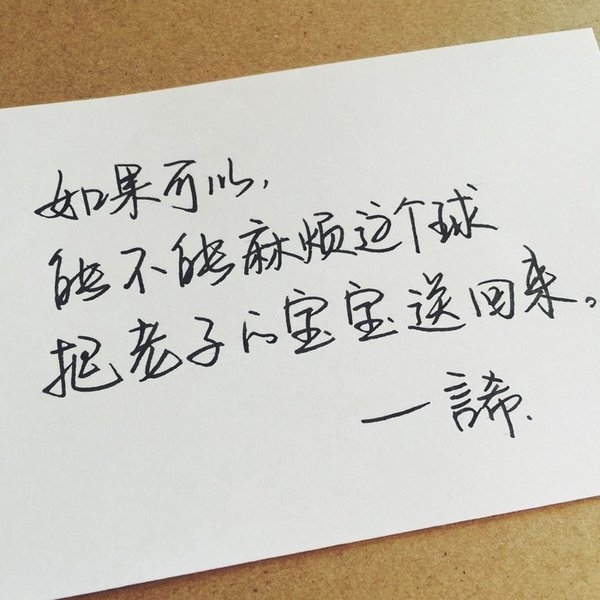 如果可以，
能不能麻烦这个球
把老子的宝宝送回来。
一諦.